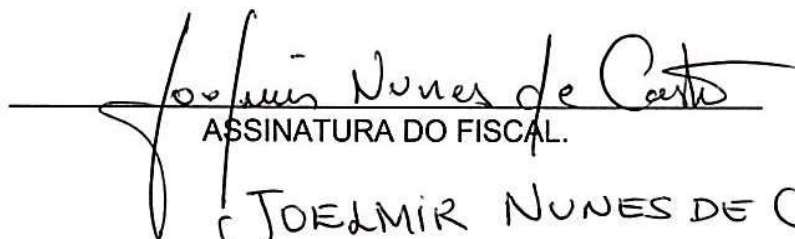 Joelmir Nunes de Castro
ASSINATURA DO FISCAL.
JOELMIR NUNES DE C